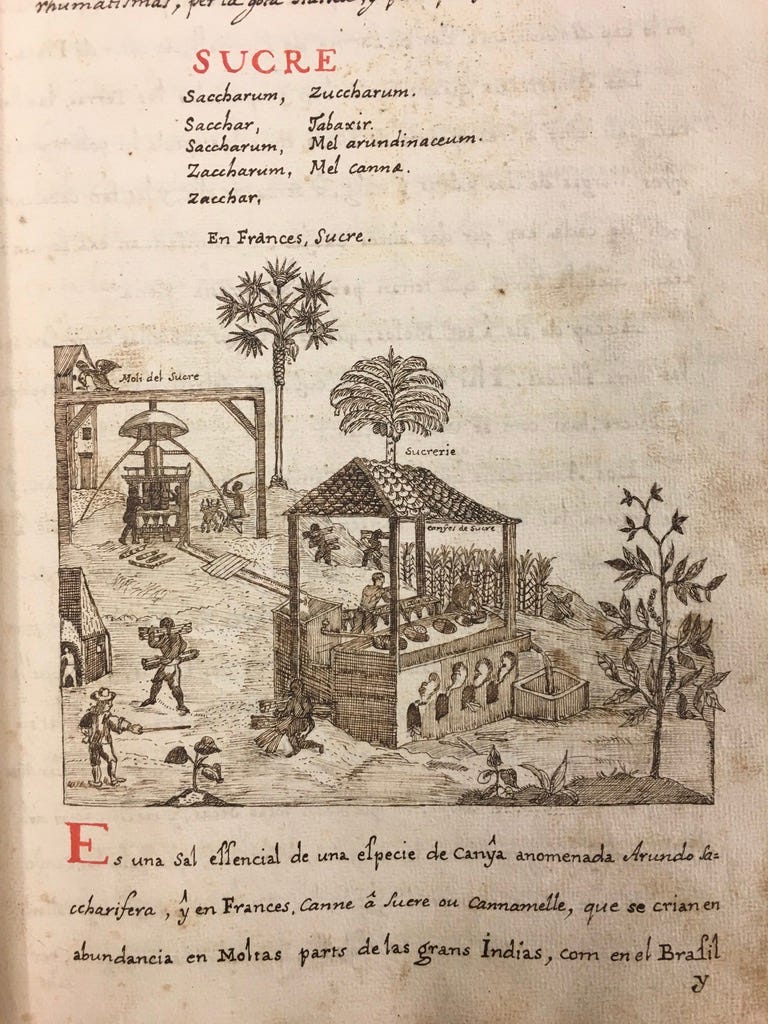 rhumatismas, per la gota
SUCRE
Saccharum, Zuccharum.
Sacchar, Tabaxir.
Saccharum, Mel arundinaceum.
Zaccharum, Mel cannæ.
Zacchar,
En Frances, Sucre.
Moli del Sucre
Sucrerie
Canyes de Sucre
Es una Sal eſſencial de una eſpecie de Canÿa anomenada Arundo Sa=
ccharifera, ŷ en Frances, Canne â Sucre ou Cannamelle, que se crian en
abundancia en Moltas parts de las grans Indias, com en el Braſil
y